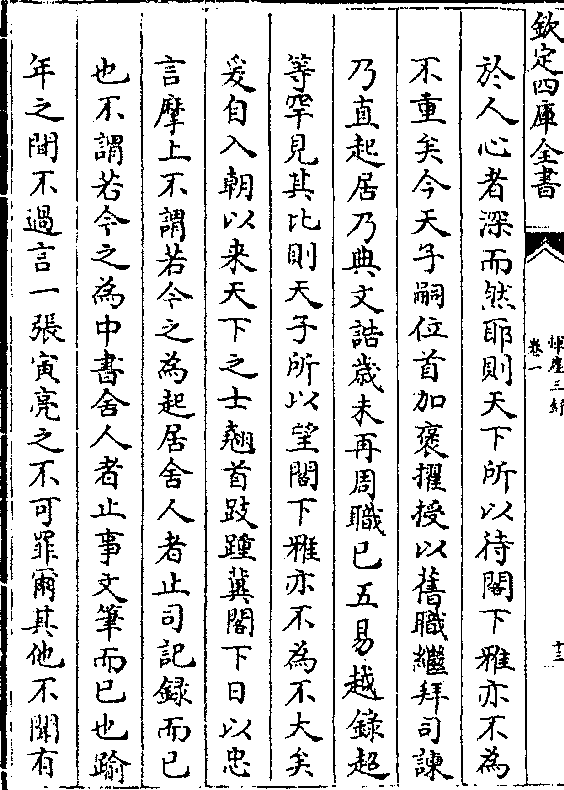 欽定四庫全書
卷一
十三
於人心者深而然耶則天下所以待閣下雅亦不為
不重矣今天子嗣位首加褒擢授以舊職繼拜司諫
乃直起居乃典文誥歳未再周職已五易越錄超
等罕見其比則天子所以望閣下雅亦不為不大矣
爰自入朝以来天下之士翹首跂踵冀閣下日以忠
言摩上不謂若今之為起居舍人者止司記録而已
也不謂若今之為中書舍人者止事文筆而已也踰
年之間不過言一張寅亮之不可罪爾其他不聞有